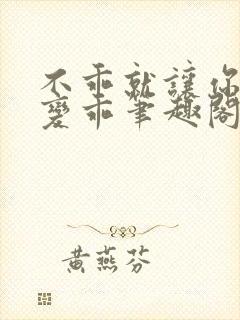 不乖就讓你
變乖筆趣閣
黃燕芬